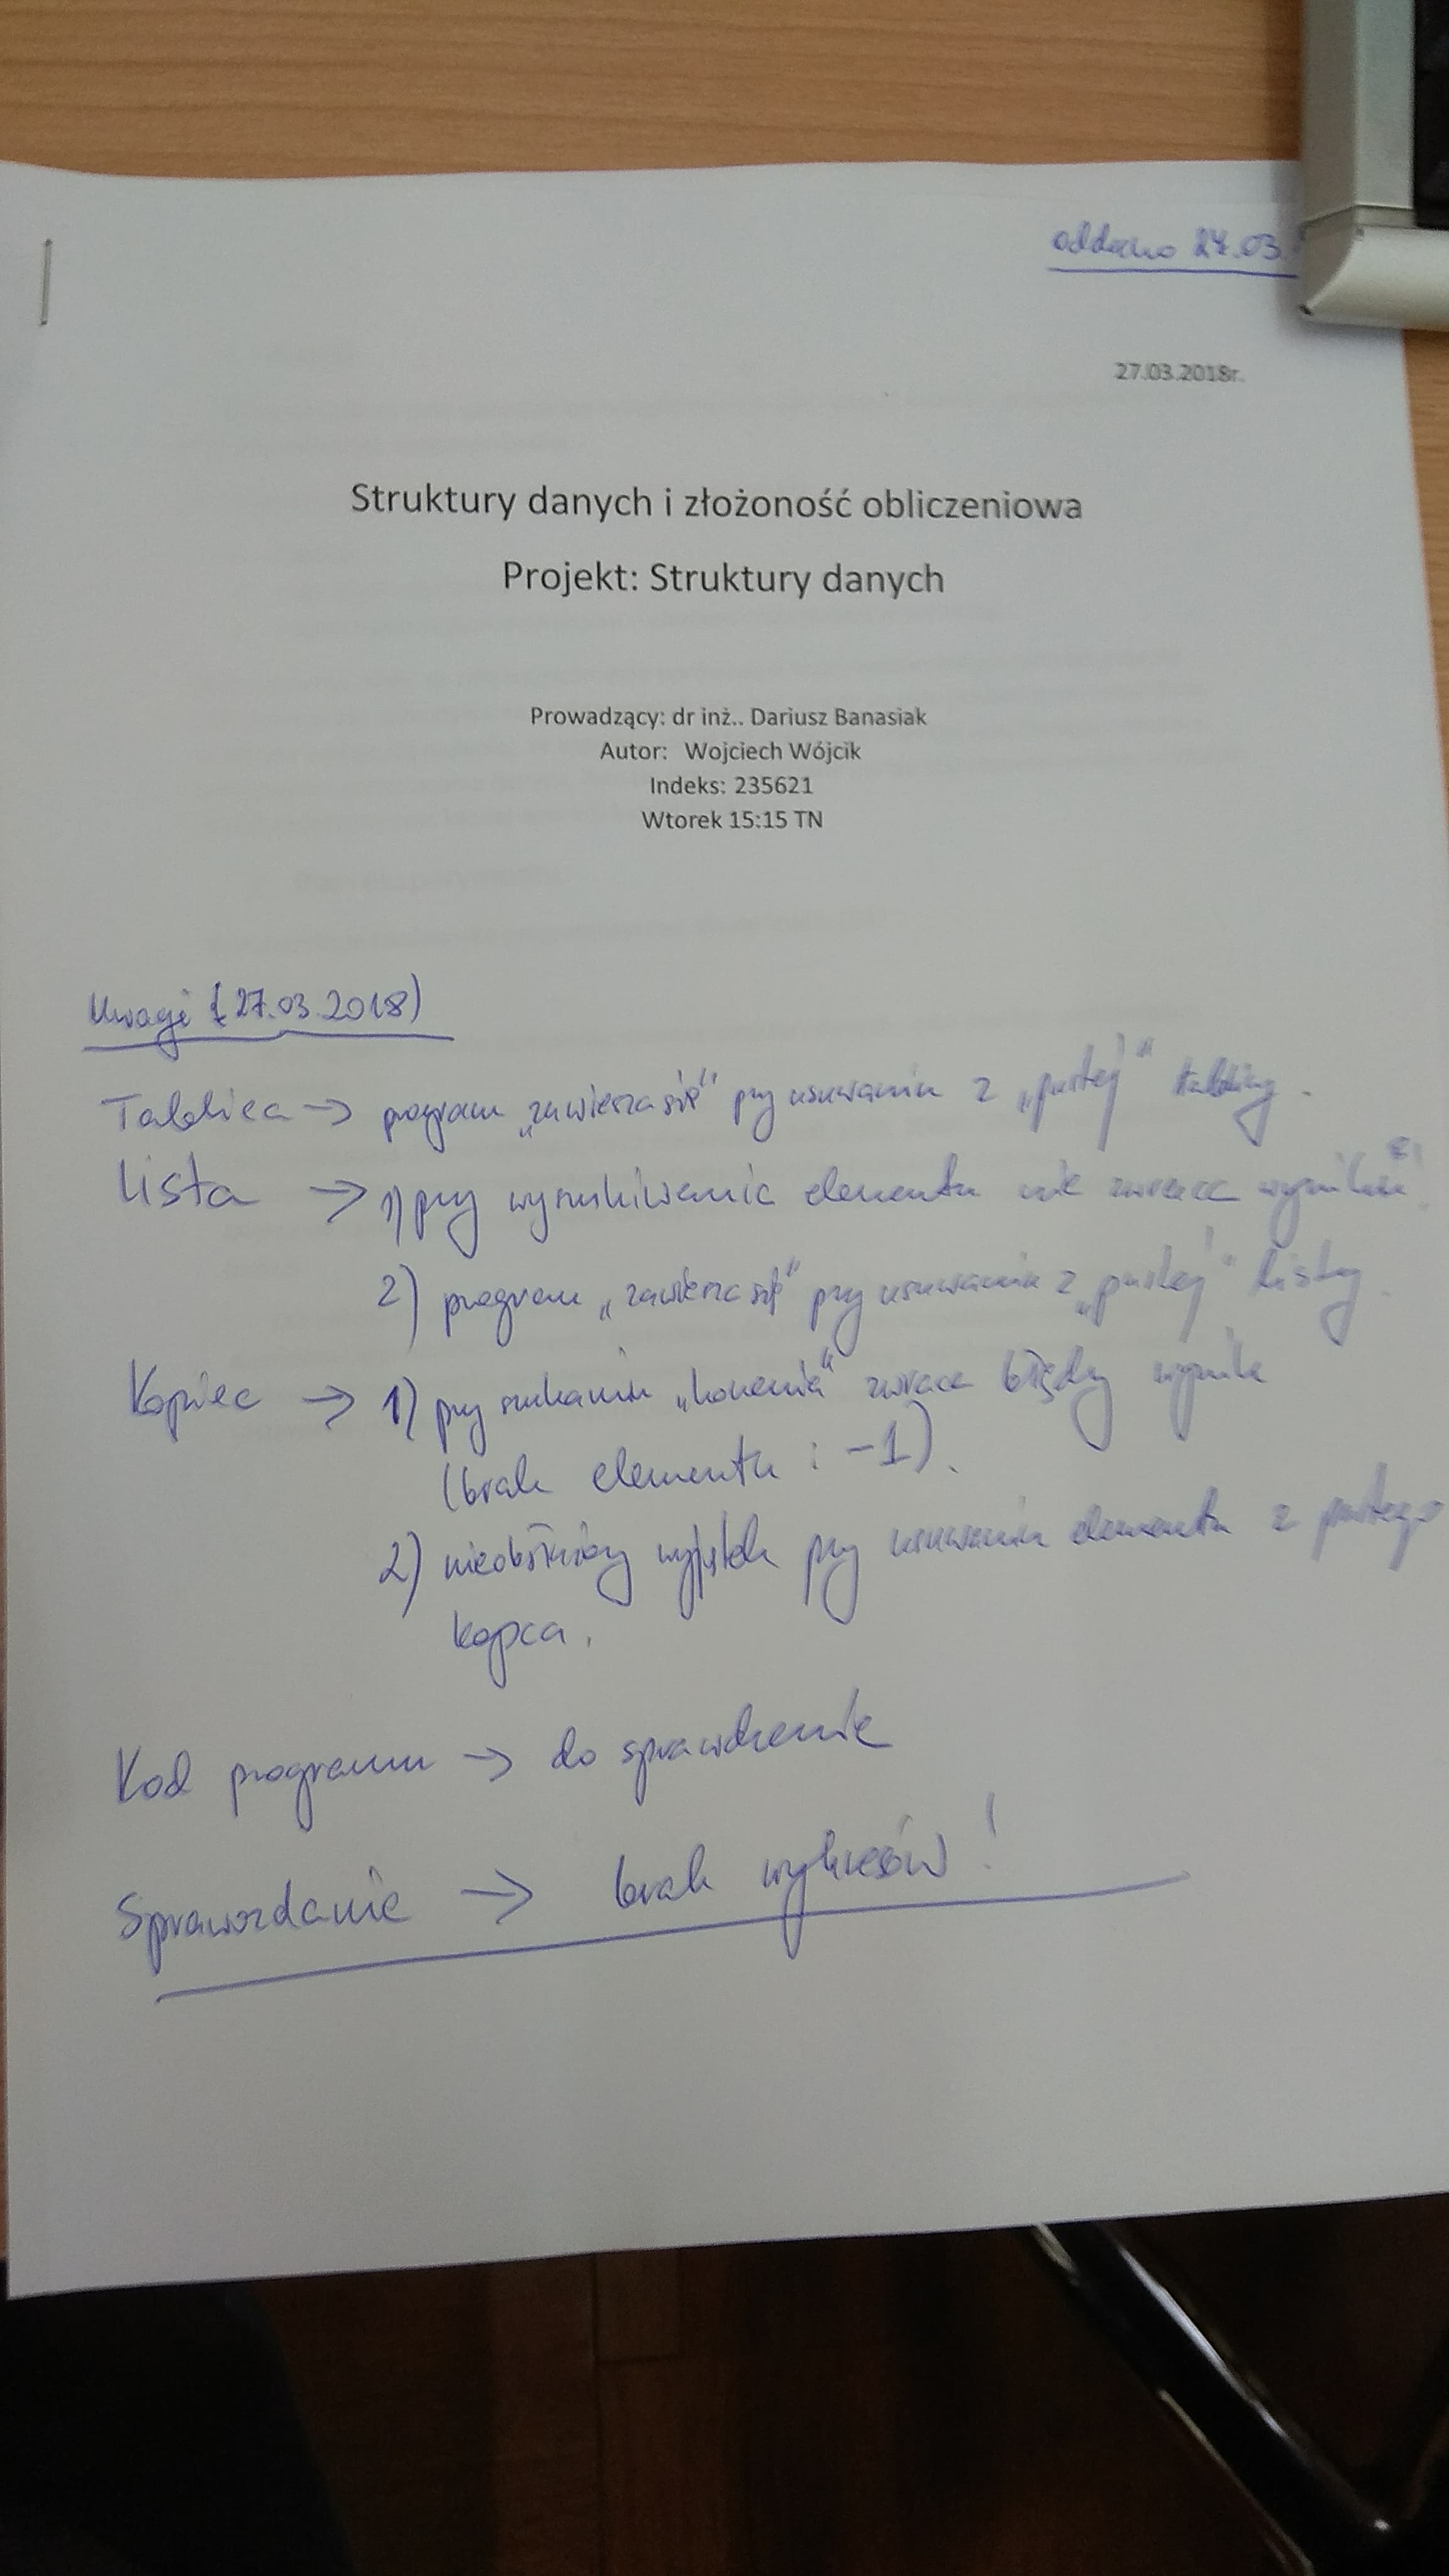 oddano 27.03.
27.03.2018r.
Struktury danych i złożoność obliczeniowa
Projekt: Struktury danych
Prowadzący: dr inż.. Dariusz Banasiak
Autor: Wojciech Wójcik
Indeks: 235621
Wtorek 15:15 TN
Uwagi (27.03.2018)
Tablica → program „zawiesza się" przy usuwaniu z „pustej" tablicy.
Lista → 1) przy wyszukiwaniu elementu nie zwraca
2) program „zawiesza się" przy usuwaniu z „pustej" listy.
Kopiec → 1) przy szukaniu zwraca błędny wynik
(brak elementu : -1).
2) nieobsłużony wyjątek przy usuwaniu elementu z pustego
kopca.
Kod programu → do sprawdzenia
Sprawozdanie → brak wykresów!